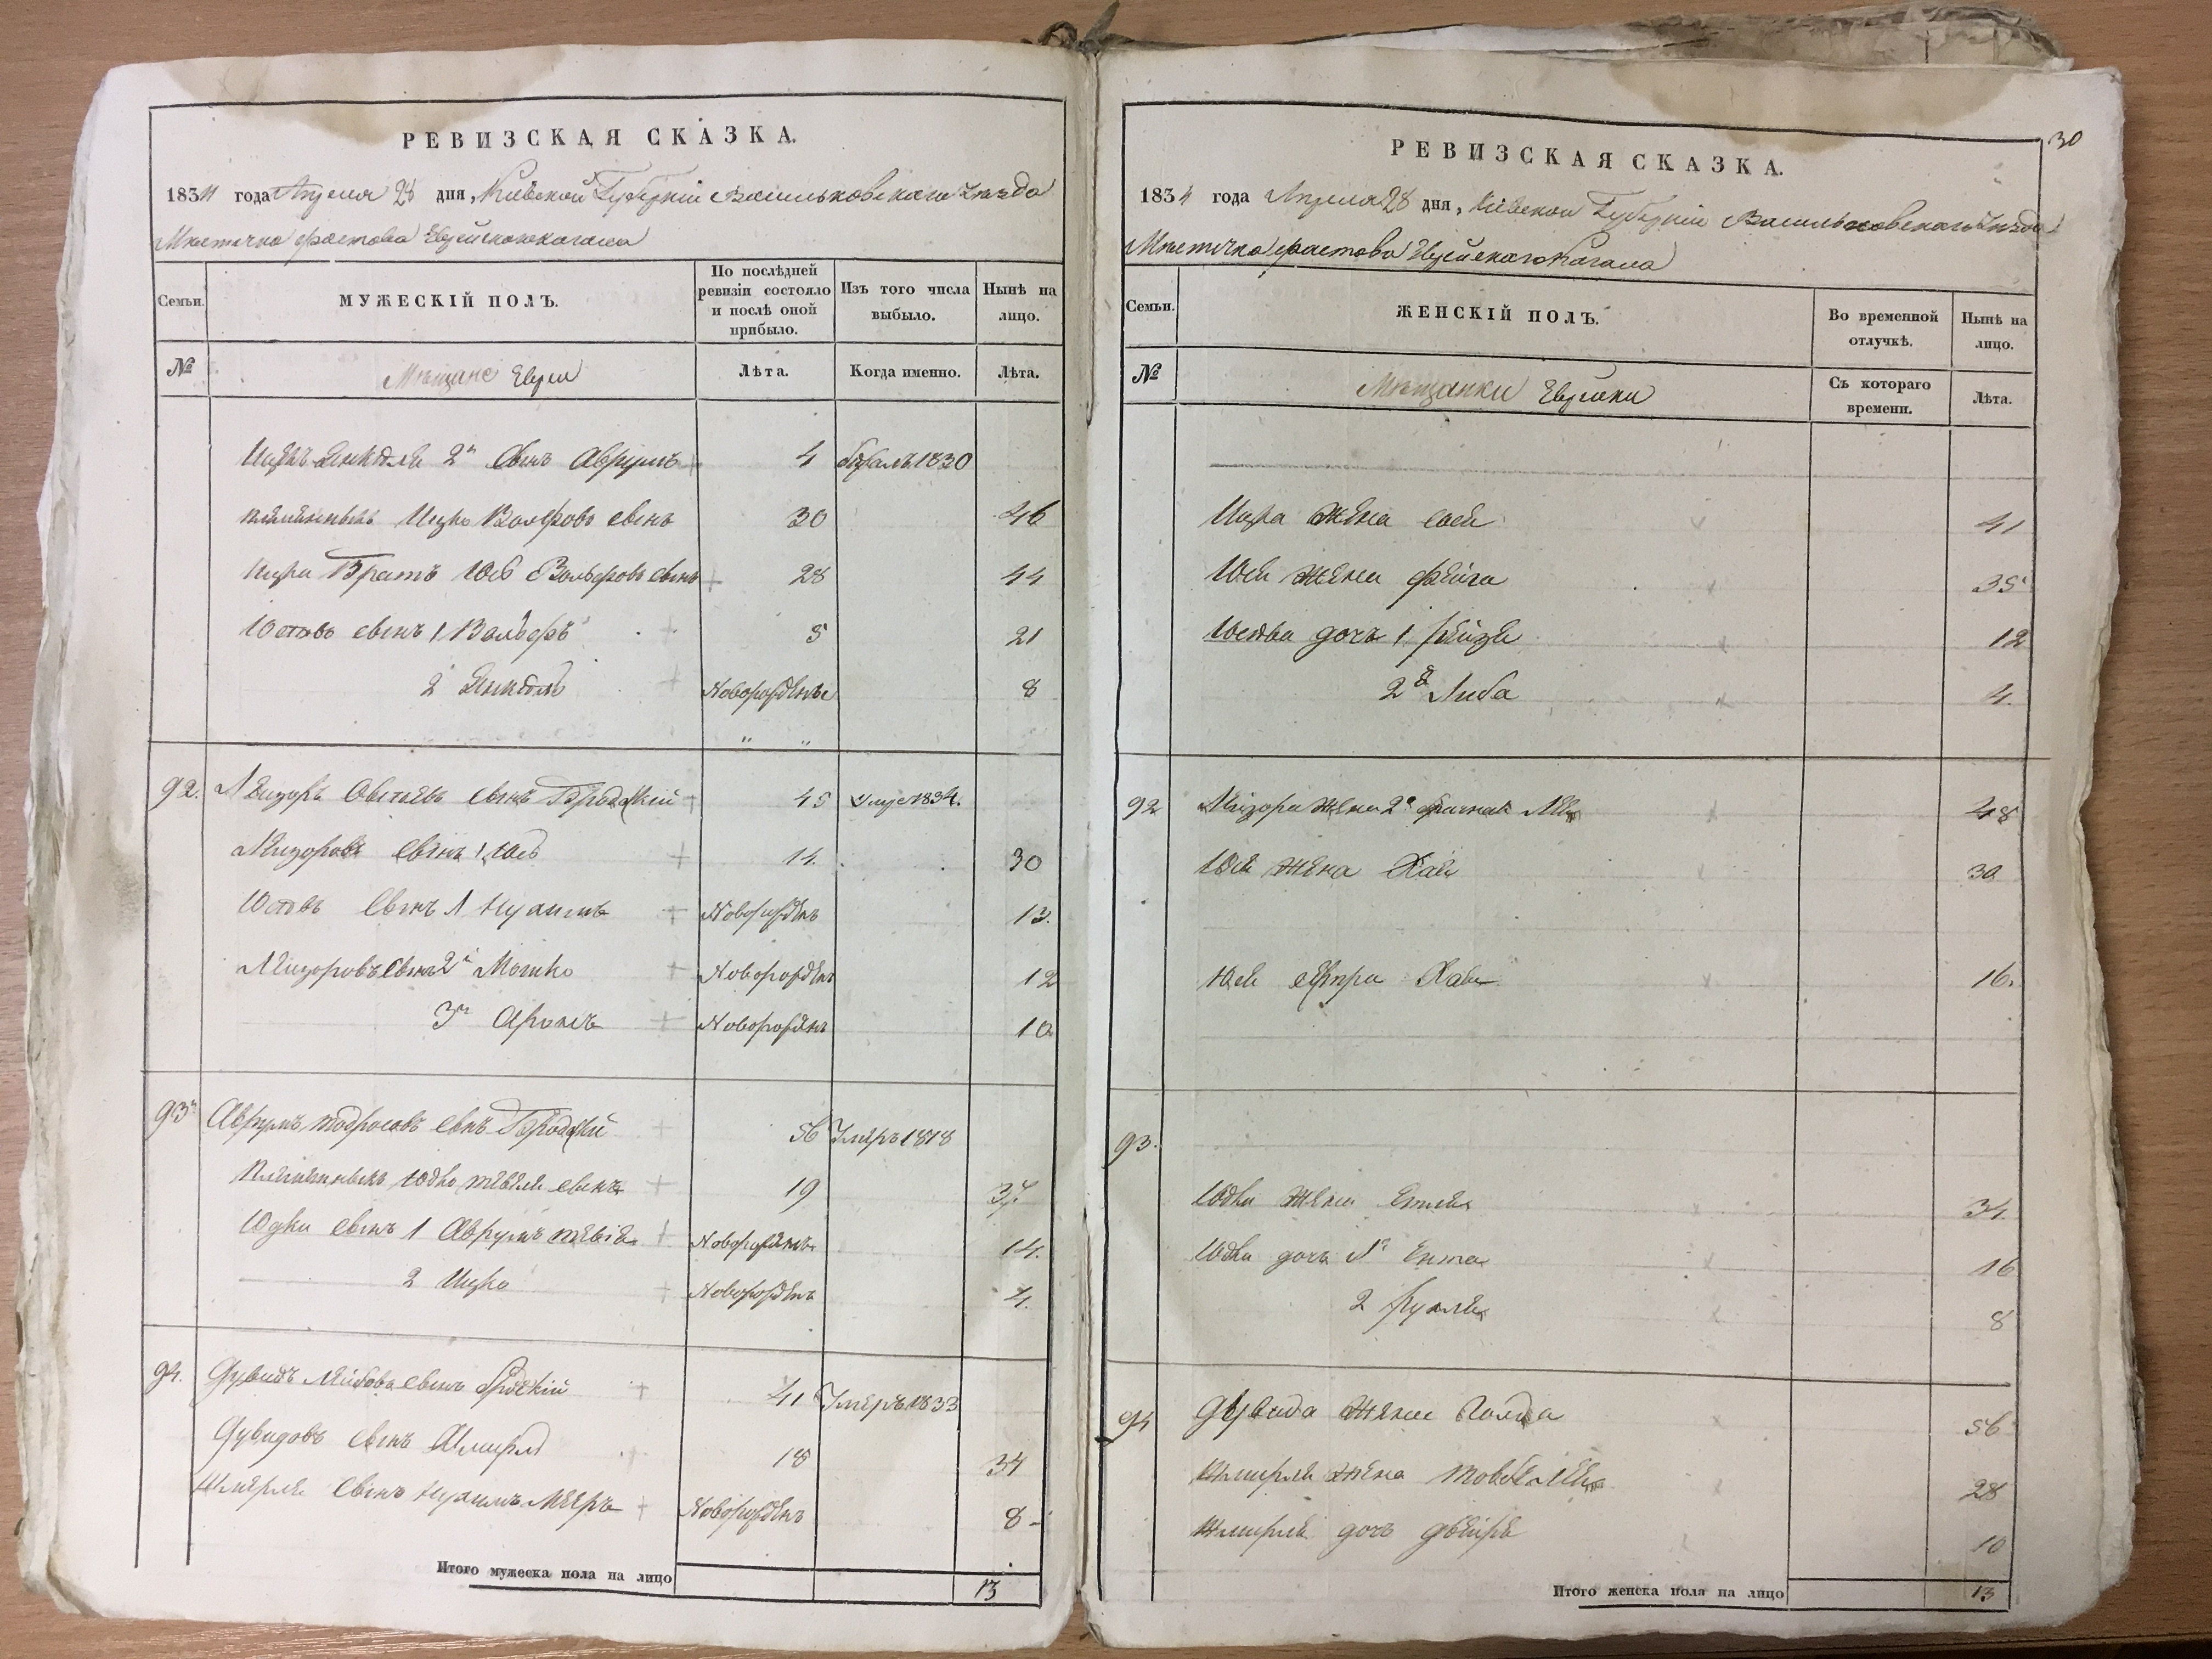 РЕВИЗСКАЯ СКАЗКА.
1834 года Апреля 28 дня, Киевской Губерніи Васильковскаго уезда
Местечка Фастова Еврейского кагала
Семьи.
МУЖЕСКІЙ ПОЛЪ.
По послѣдней ревизіи состояло и послѣ оной прибыло.
Изъ того числа выбыло.
Нынѣ на лицо.
№
Мещане Евреи
Лѣта.
Когда именно.
Лѣта.
2й сынъ Аврумъ 4 1830
Ицко Волфовъ сынъ 30 46
Ицки Братъ Юсь Вольфовъ сынъ 28 44
Юсовъ сынъ 1 Вольфъ 5 21
2 Новорожденые 8
" "
92. Лейзоръ сынъ Бродскій 45 1834.
Лейзоровъ сынъ 1 Юсь 14. 30
Юсовъ сынъ 1 Нухимъ Новорожденъ 13.
Лейзоровъ сынъ 2й Мошко Новорожденъ 12
3й Аронъ Новорожденъ 10
93 Аврумъ сынъ Бродскій 56 Умеръ 1818
Племянникъ Юдко сынъ 19 37.
Юдки сынъ 1 Аврумъ Новорожденъ 14.
2 Ицко Новорожденъ 4.
94. Дувидъ Лейбовъ сынъ Бродскій 41 Умеръ 1833
Дувидовъ сынъ Шмерль 18 34
Шмерля сынъ Нухимъ Мееръ Новорожденъ 8
Итого мужеска пола на лицо 13
30
РЕВИЗСКАЯ СКАЗКА.
1834 года Апреля 28 дня, Киевской Губерніи Васильковскаго уезда
Местечка Фастова Еврейскаго Кагала
Семьи.
ЖЕНСКІЙ ПОЛЪ.
Во временной отлучкѣ.
Нынѣ на лицо.
№
Мещанки Еврейки
Съ котораго времени.
Лѣта.
Ицка жена 41
Юся жена Фейга 35
Юсова дочь 1 Рейзя 12
2я Либа 4.
92 Лейзора жена 2 брачная 48
Юся жена Хая 30
Юся сестра Хава 16.
93.
Юдки жена 34
Юдки дочь 1 Ента 16
2 Рухля 8
94 Дувида жена Голда 56
Шмерля жена 28
Шмерля дочь Двейра 10
Итого женска пола на лицо 13